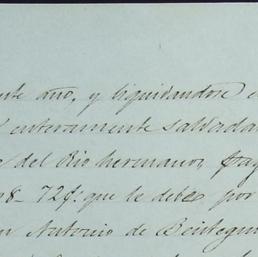 nte año, y liquidandose
enteramente saldada
del Rio hermanos, pag
8-72 f: que le debe por
n Antonio de Beistegui